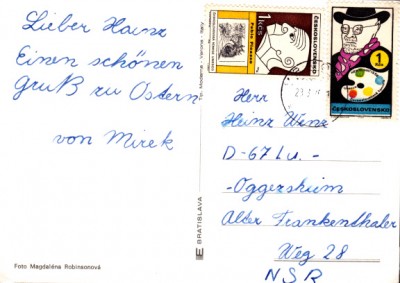 Lieber Heinz
Einen schönen
Gruß zu Ostern
von Mirek
Foto Magdaléna Robinsonová
BRATISLAVA
1 Kčs
Pablo Picasso
ČESKOSLOVENSKO
1
ČESKOSLOVENSKO
Herr
Heinz Wenz
D-67 Lu. -
-Oggersheim
Alter Frankenthaler
Weg 28
NSR